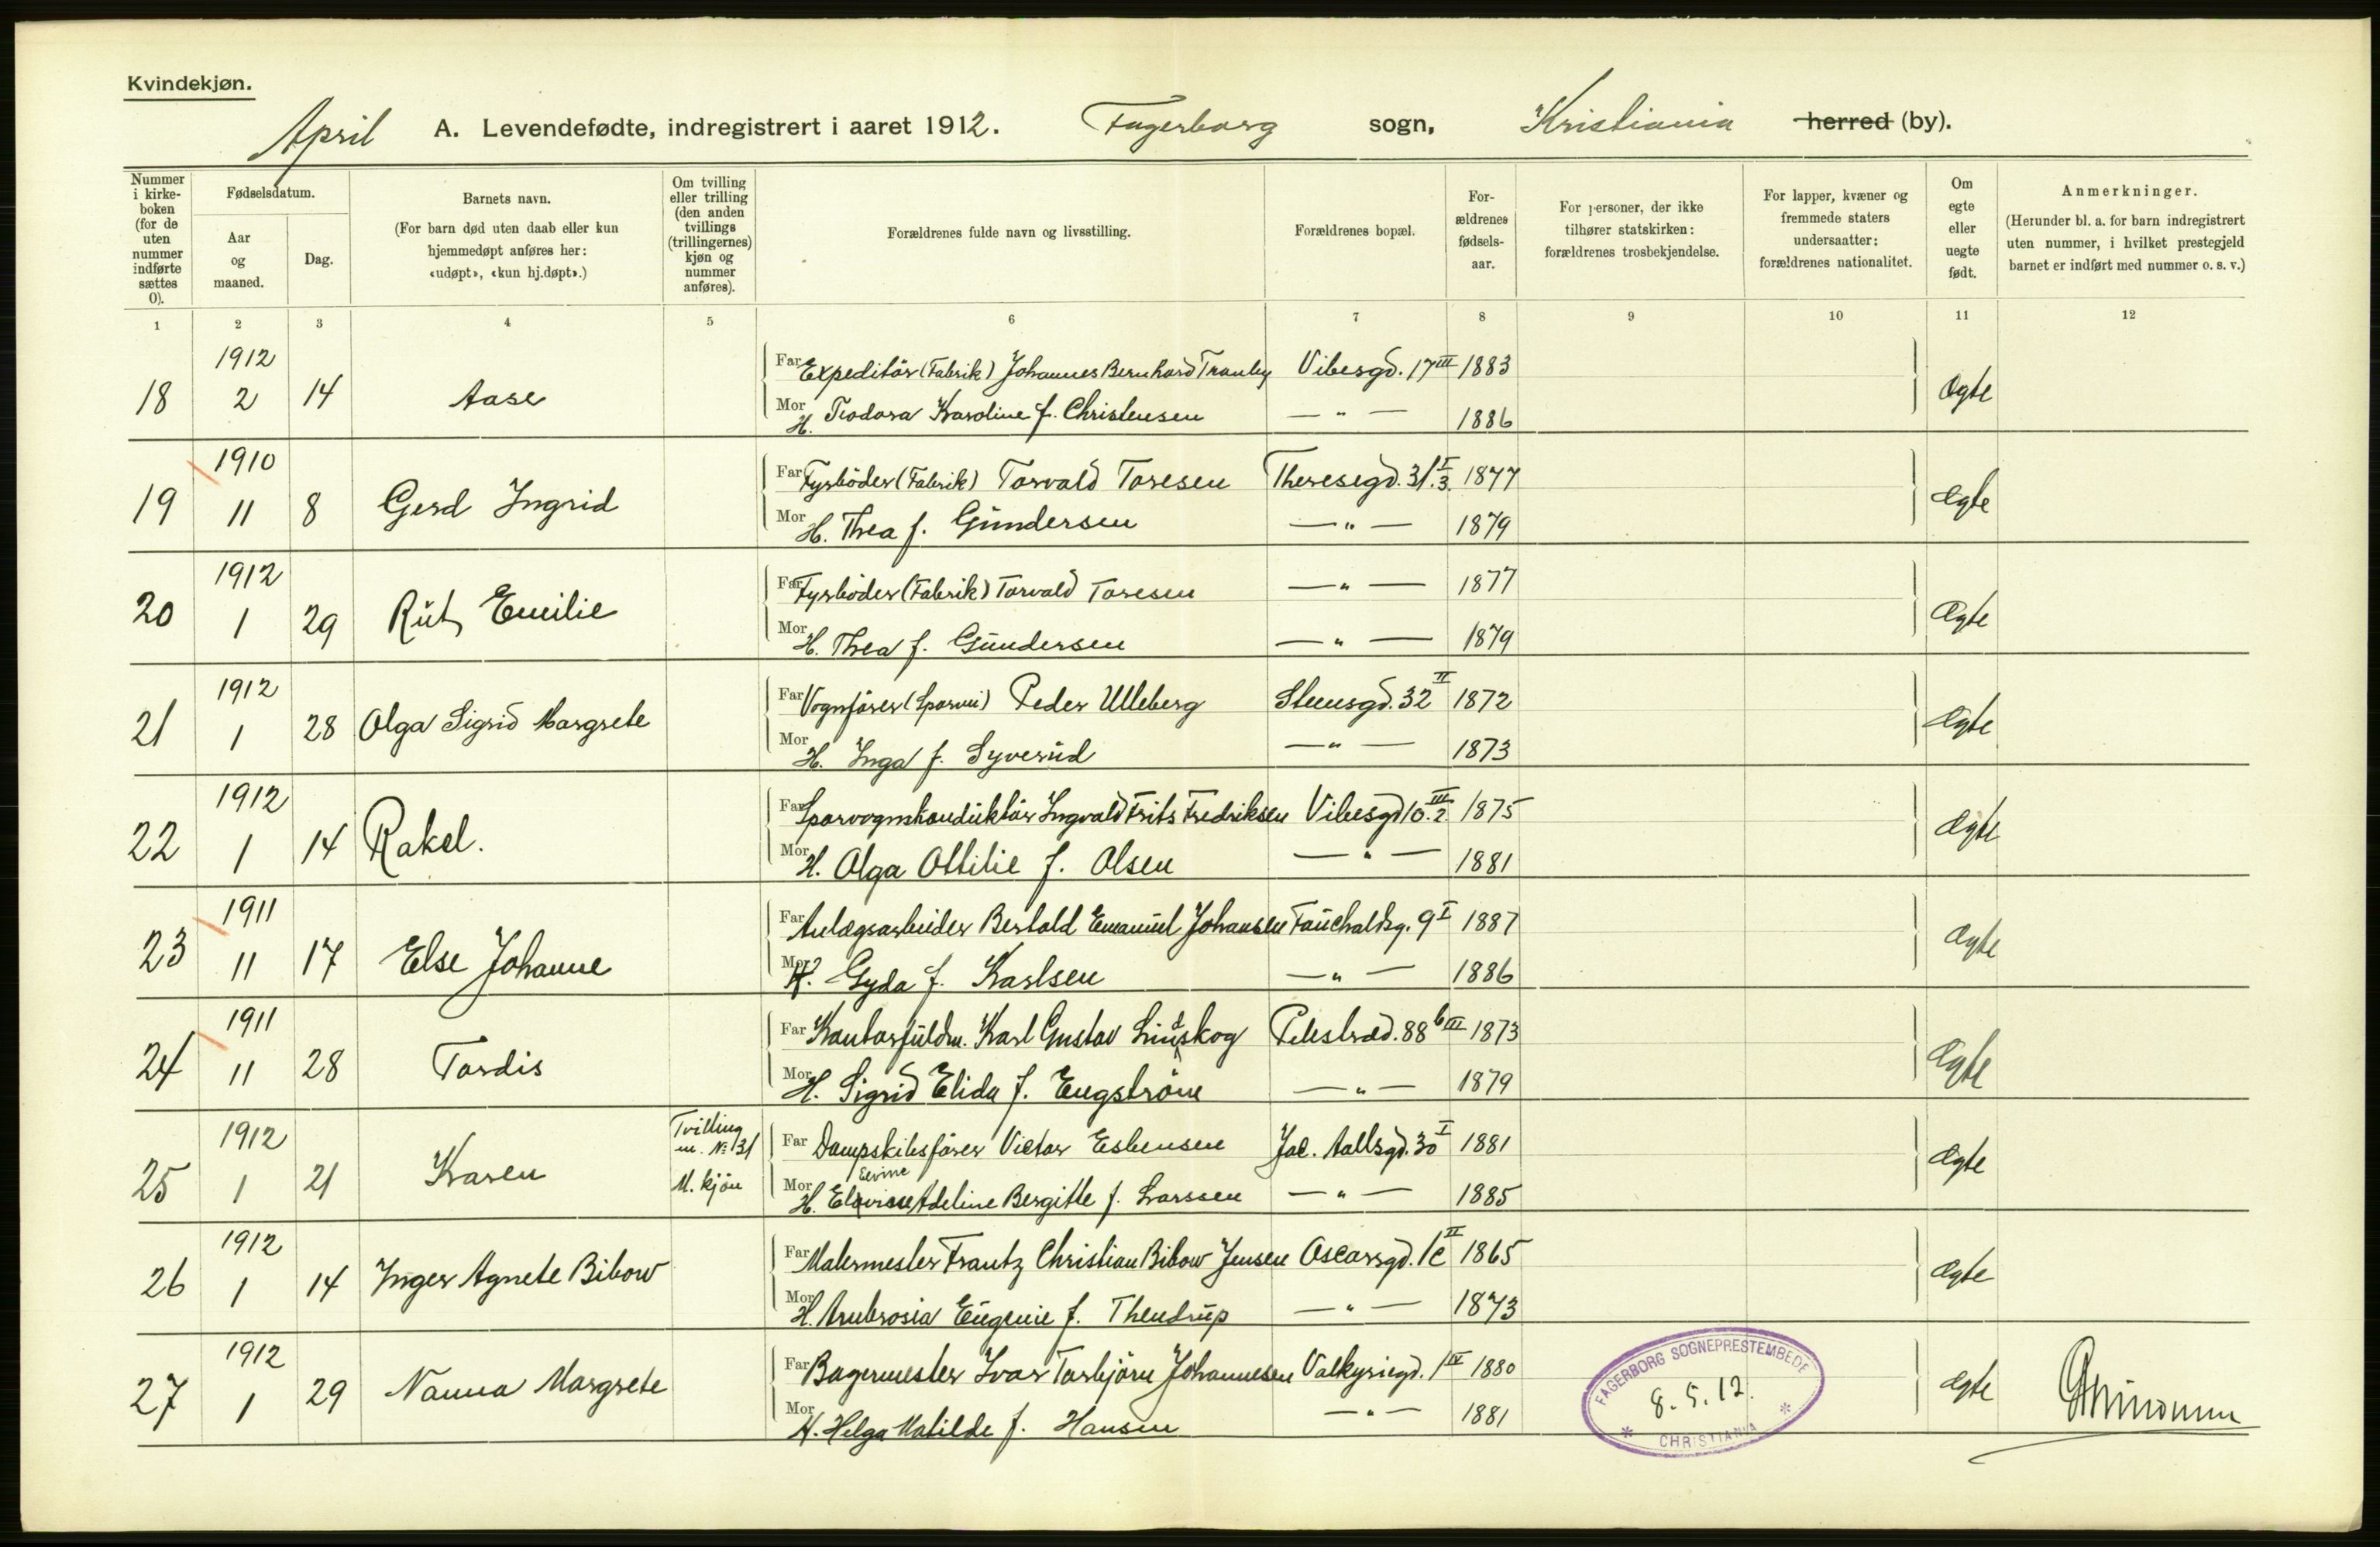 Kvindekjøn.
April A. Levendefødte, indregistrert i aaret 1912. Fagerborg sogn, Kristiania herred (by).
Nummer i kirkeboken (for de uten nummer indførte sættes 0).
Fødselsdatum.
Aar og maaned.
Dag.
Barnets navn.
(For barn død uten daab eller kun hjemmedøpt anføres her: «udøpt», «kun hj.døpt».)
Om tvilling eller trilling (den anden tvillings (trillingernes) kjøn og nummer anføres).
Forældrenes fulde navn og livsstilling.
Forældrenes bopæl.
Forældrenes fødselsaar.
For personer, der ikke tilhører statskirken: forældrenes trosbekjendelse.
For lapper, kvæner og fremmede staters undersaatter: forældrenes nationalitet.
Om egte eller uegte født.
Anmerkninger.
(Herunder bl. a. for barn indregistrert uten nummer, i hvilket prestegjeld barnet er indført med nummer o. s. v.)
1 2 3 4 5 6 7 8 9 10 11 12
1912 Far Expeditör (Fabrik) Johannes Bernhard Tranby Vibesgd. 17 III 1883
18 2 14 Aase Ægte
Mor H. Teodora Karoline f. Christensen — " — 1886
1910 Far Fyrböder (Fabrik) Torvald Toresen Theresegd. 31. I 3. 1877
19 11 8 Gerd Ingrid Ægte
Mor H. Thea f. Gundersen — " — 1879
1912 Far Fyrböder (Fabrik) Torvald Toresen — " — 1877
20 1 29 Rut Emilie Ægte
Mor H. Thea f. Gundersen — " — 1879
1912 Far Vognförer (Sporvei) Peder Ulleberg Stensgd. 32 II 1872
21 1 28 Olga Sigrid Margrete Ægte
Mor H. Inga f. Syverud — " — 1873
1912 Far Sporvognskonduktör Ingvald Frits Fredriksen Vibesgd 10. III 2. 1875
22 1 14 Rakel. Ægte
Mor H. Olga Ottilie f. Olsen — " — 1881
1911 Far Anlægsarbeider Bertold Emanuel Johansen Fauchaldsg. 9 I 1887
23 11 17 Else Johanne Ægte
Mor H. Gyda f. Karlsen — " — 1886
1911 Far Kontorfuldm. Karl Gustav Lindskog Pilestræd. 88 b III 1873
24 11 28 Tordis Ægte
Mor H. Sigrid Elida f. Engström — " — 1879
1912 Tvilling m. No 31 Far Dampskibsförer Victor Esbensen Jac. Aallsgd. 30 I 1881
25 1 21 Karen M. kjön Ægte
Mor H. Elvine Adeline Bergitte f. Larssen — " — 1885
1912 Far Malermester Frantz Christian Bibow Jensen Oscarsgd. 1c II 1865
26 1 14 Inger Agnete Bibow Ægte
Mor H. Ambrosia Eugenie f. Thendrup — " — 1873
1912 Far Bagermester Ivar Torbjörn Johannesen Valkyriegd. 1 IV 1880
27 1 29 Nanna Margrete Ægte
Mor H. Helga Matilde f. Hansen — " — 1881
FAGERBORG SOGNEPRESTEMBEDE
8. 5. 12.
* CHRISTIANIA *